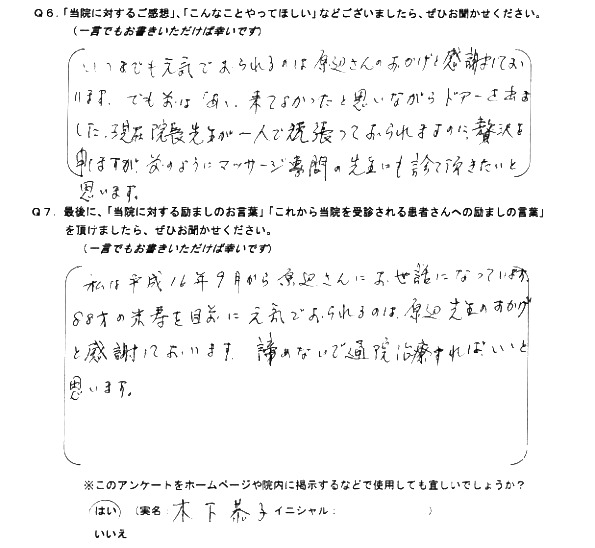 Ｑ６．「当院に対するご感想」、「こんなことやってほしい」などございましたら、ぜひお聞かせください。
（一言でもお書きいただければ幸いです）
いつまでも元気でおられるのは原辺さんのおかげと感謝してお
ります。でも前は「あゝ来てよかったと思いながらドアーを出ま
した。現在院長先生が一人で頑張っておられますのに、贅沢を
申しますが、前のようにマッサージ専門の先生にも診て頂きたいと
思います。
Ｑ７．最後に、「当院に対する励ましのお言葉」「これから当院を受診される患者さんへの励ましの言葉」
を頂けましたら、ぜひお聞かせください。
（一言でもお書きいただければ幸いです）
私は平成16年9月から原辺さんにお世話になっています。
88才の米寿を目前に元気でおられるのは、原辺先生のおかげ
と感謝しております。諦めないで通院治療すればいいと
思います。
※このアンケートをホームページや院内に掲示するなどで使用しても宜しいでしょうか？
はい （実名：木下恭子 イニシャル： ）
いいえ